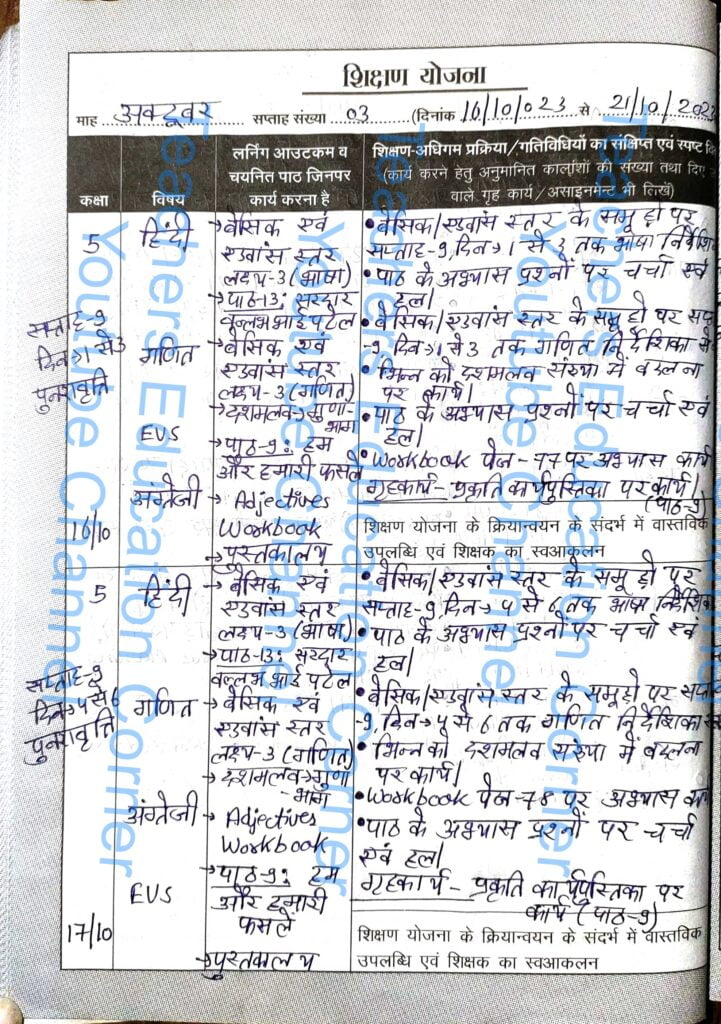 शिक्षण योजना
माह अक्टूबर सप्ताह संख्या 03 (दिनांक 16/10/023 से 21/10/2023
कक्षा
विषय
लर्निंग आउटकम व
चयनित पाठ जिनपर
कार्य करना है
शिक्षण-अधिगम प्रक्रिया/गतिविधियों का संक्षिप्त एवं स्पष्ट
(कार्य करने हेतु अनुमानित कालांशों की संख्या तथा दिए
वाले गृह कार्य/असाइनमेंट भी लिखें)
5
हिंदी
→ बेसिक एवं
एडवांस स्तर
लक्ष्य-3 (भाषा)
→ पाठ-13: सरदार
वल्लभ भाई पटेल
• बेसिक/एडवांस स्तर के समूहों पर
सप्ताह-9, दिन→1 से 3 तक भाषा निर्देशि
• पाठ के अभ्यास प्रश्नों पर चर्चा एवं
हल।
सप्ताह-9
दिन→1 से 3
पुनरावृत्ति
गणित
→ बेसिक एवं
एडवांस स्तर
लक्ष्य-3 (गणित)
→ दशमलव→गुणा-
भाग
• बेसिक/एडवांस स्तर के समूहों पर सप्
-9, दिन→1 से 3 तक गणित निर्देशिका से
• भिन्न को दशमलव संख्या में बदलना
पर कार्य।
EVS
→ पाठ-9: हम
और हमारी फसलें
• पाठ के अभ्यास प्रश्नों पर चर्चा एवं
हल।
अंग्रेजी
→ Adjectives
Workbook
→ पुस्तकालय
• Workbook पेज-77 पर अभ्यास कार्य
गृहकार्य- प्रकृति कार्यपुस्तिका पर कार्य।
(पाठ-9)
16/10
शिक्षण योजना के क्रियान्वयन के संदर्भ में वास्तविक
उपलब्धि एवं शिक्षक का स्वआकलन
5
हिंदी
→ बेसिक एवं
एडवांस स्तर
लक्ष्य-3 (भाषा)
→ पाठ-13: सरदार
वल्लभ भाई पटेल
• बेसिक/एडवांस स्तर के समूहों पर
सप्ताह-9, दिन→4 से 6 तक भाषा निर्देशिक
• पाठ के अभ्यास प्रश्नों पर चर्चा एवं
हल।
सप्ताह-9
दिन→4 से 6
पुनरावृत्ति
गणित
→ बेसिक एवं
एडवांस स्तर
लक्ष्य-3 (गणित)
→ दशमलव→गुणा
-भाग
• बेसिक/एडवांस स्तर के समूहों पर सप्
-9, दिन→4 से 6 तक गणित निर्देशिका
• भिन्न को दशमलव संख्या में बदलना
पर कार्य।
अंग्रेजी
→ Adjectives
Workbook
• Workbook पेज-78 पर अभ्यास का
EVS
→ पाठ-9: हम
और हमारी
फसलें
→ पुस्तकालय
• पाठ के अभ्यास प्रश्नों पर चर्चा
एवं हल।
गृहकार्य- प्रकृति कार्यपुस्तिका पर
कार्य (पाठ-9)
17/10
शिक्षण योजना के क्रियान्वयन के संदर्भ में वास्तविक
उपलब्धि एवं शिक्षक का स्वआकलन
Teachers Education Corner
Youtube Channel
Teachers Education Corner
Youtube Channel
Teachers Education Corner
Youtube Channel